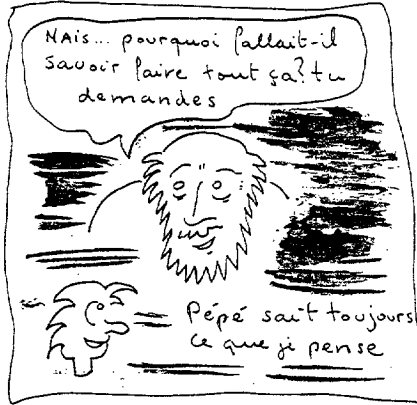 MAis... pourquoi fallait-il
savoir faire tout ça? tu
demandes
Pépé sait toujours
ce que je pense